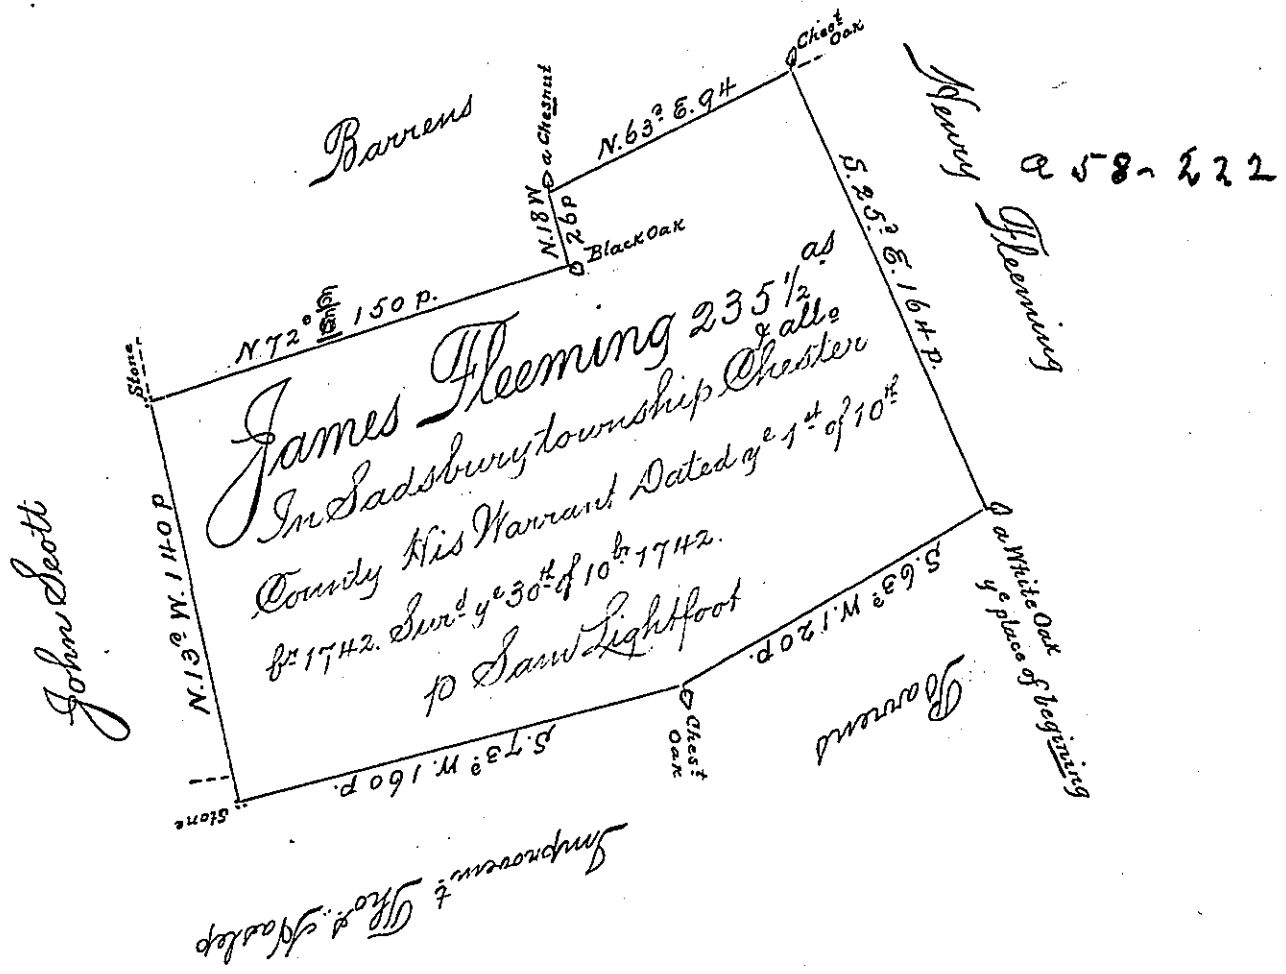 Chest Oak
Henry Fleeming
a 58-222
Barrens
a Chesnut
N.63° E.94
N.18 W
26 P
Black Oak
S.25° E.164 p.
N.72° 150 p.
Stone
James Fleeming 235 1/2 as
& allo
In Sadsbury township Chester
County His Warrant Dated ye 1st of 10th
br 1742. Surd ye 30th of 10br 1742.
p Saml Lightfoot
John Scott
N.13° W.140 P
a White Oak
ye place of begining
S.63° W.120 p.
Barrens
Chest Oak
S.73° W.160 p.
Stone
Improvemt Thos. Haslep